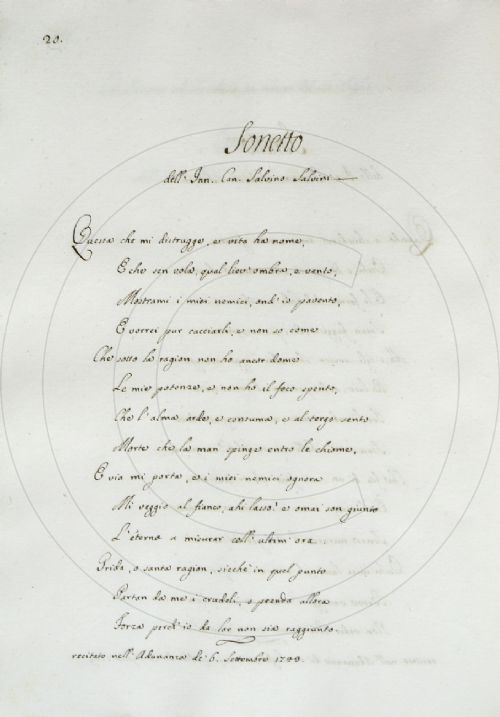 20.
Sonetto
dell' Inn. Can. Salvino Salvini
Questa che mi distrugge, e vita ha nome,
E che sen vola, qual liev' ombra, o vento,
Mostrami i miei nemici, ond' io pavento,
E vorrei pur cacciarli, e non so come
Che sotto la ragion non ho ancor dome
Le mie potenze, e non ho il foco spento,
Che l' alma arde, e consuma, e al tergo sento
Morte che la man spinge entro le chiome,
E via mi porta, e i miei nemici ognora
Mi veggio al fianco, ahi lasso! e omai son giunto
L' eterno a misurar coll' ultim' ora
Grida, o santa ragion, sicchè in quel punto
Partan da me i crudeli, e prenda allora
Forza perch' io da lor non sia raggiunto.
recitato nell' Adunanza de' 6. Settembre